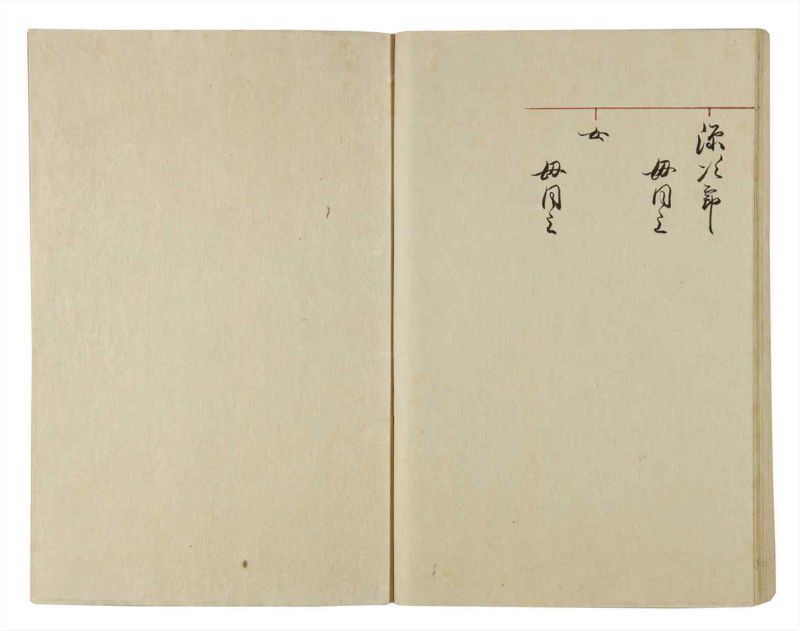 源次郎
母同上
女
母同上